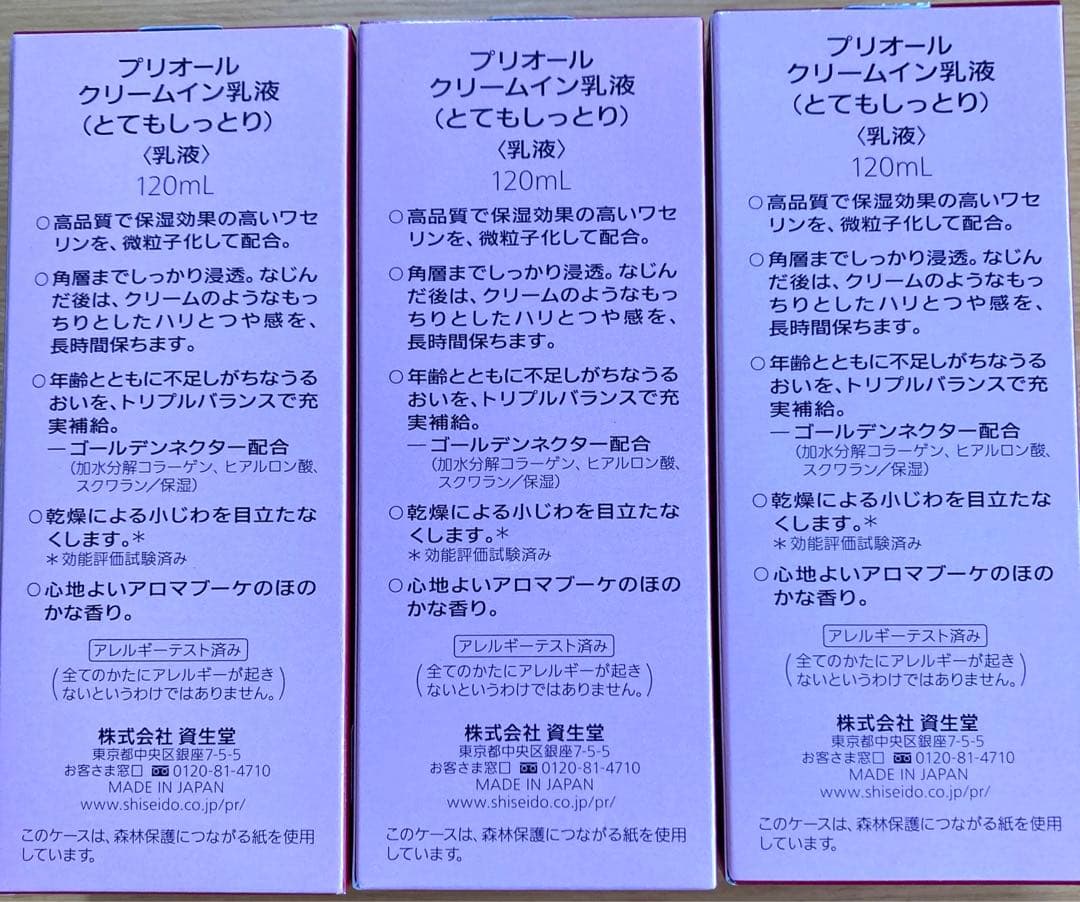 プリオール
クリームイン乳液
(とてもしっとり)
〈乳液〉
120mL
○高品質で保湿効果の高いワセ
リンを、微粒子化して配合。
○角層までしっかり浸透。なじん
だ後は、クリームのようなもっ
ちりとしたハリとつや感を、
長時間保ちます。
○年齢とともに不足しがちなうる
おいを、トリプルバランスで充
実補給。
―ゴールデンネクター配合
(加水分解コラーゲン、ヒアルロン酸、
スクワラン/保湿)
○乾燥による小じわを目立たな
くします。*
*効能評価試験済み
○心地よいアロマブーケのほの
かな香り。
アレルギーテスト済み
(全てのかたにアレルギーが起き
ないというわけではありません。)
株式会社 資生堂
東京都中央区銀座7-5-5
お客さま窓口 0120-81-4710
MADE IN JAPAN
www.shiseido.co.jp/pr/
このケースは、森林保護につながる紙を使用
しています。
プリオール
クリームイン乳液
(とてもしっとり)
〈乳液〉
120mL
○高品質で保湿効果の高いワセ
リンを、微粒子化して配合。
○角層までしっかり浸透。なじん
だ後は、クリームのようなもっ
ちりとしたハリとつや感を、
長時間保ちます。
○年齢とともに不足しがちなうる
おいを、トリプルバランスで充
実補給。
―ゴールデンネクター配合
(加水分解コラーゲン、ヒアルロン酸、
スクワラン/保湿)
○乾燥による小じわを目立たな
くします。*
*効能評価試験済み
○心地よいアロマブーケのほの
かな香り。
アレルギーテスト済み
(全てのかたにアレルギーが起き
ないというわけではありません。)
株式会社 資生堂
東京都中央区銀座7-5-5
お客さま窓口 0120-81-4710
MADE IN JAPAN
www.shiseido.co.jp/pr/
このケースは、森林保護につながる紙を使用
しています。
プリオール
クリームイン乳液
(とてもしっとり)
〈乳液〉
120mL
○高品質で保湿効果の高いワセ
リンを、微粒子化して配合。
○角層までしっかり浸透。なじん
だ後は、クリームのようなもっ
ちりとしたハリとつや感を、
長時間保ちます。
○年齢とともに不足しがちなうる
おいを、トリプルバランスで充
実補給。
―ゴールデンネクター配合
(加水分解コラーゲン、ヒアルロン酸、
スクワラン/保湿)
○乾燥による小じわを目立たな
くします。*
*効能評価試験済み
○心地よいアロマブーケのほの
かな香り。
アレルギーテスト済み
(全てのかたにアレルギーが起き
ないというわけではありません。)
株式会社 資生堂
東京都中央区銀座7-5-5
お客さま窓口 0120-81-4710
MADE IN JAPAN
www.shiseido.co.jp/pr/
このケースは、森林保護につながる紙を使用
しています。